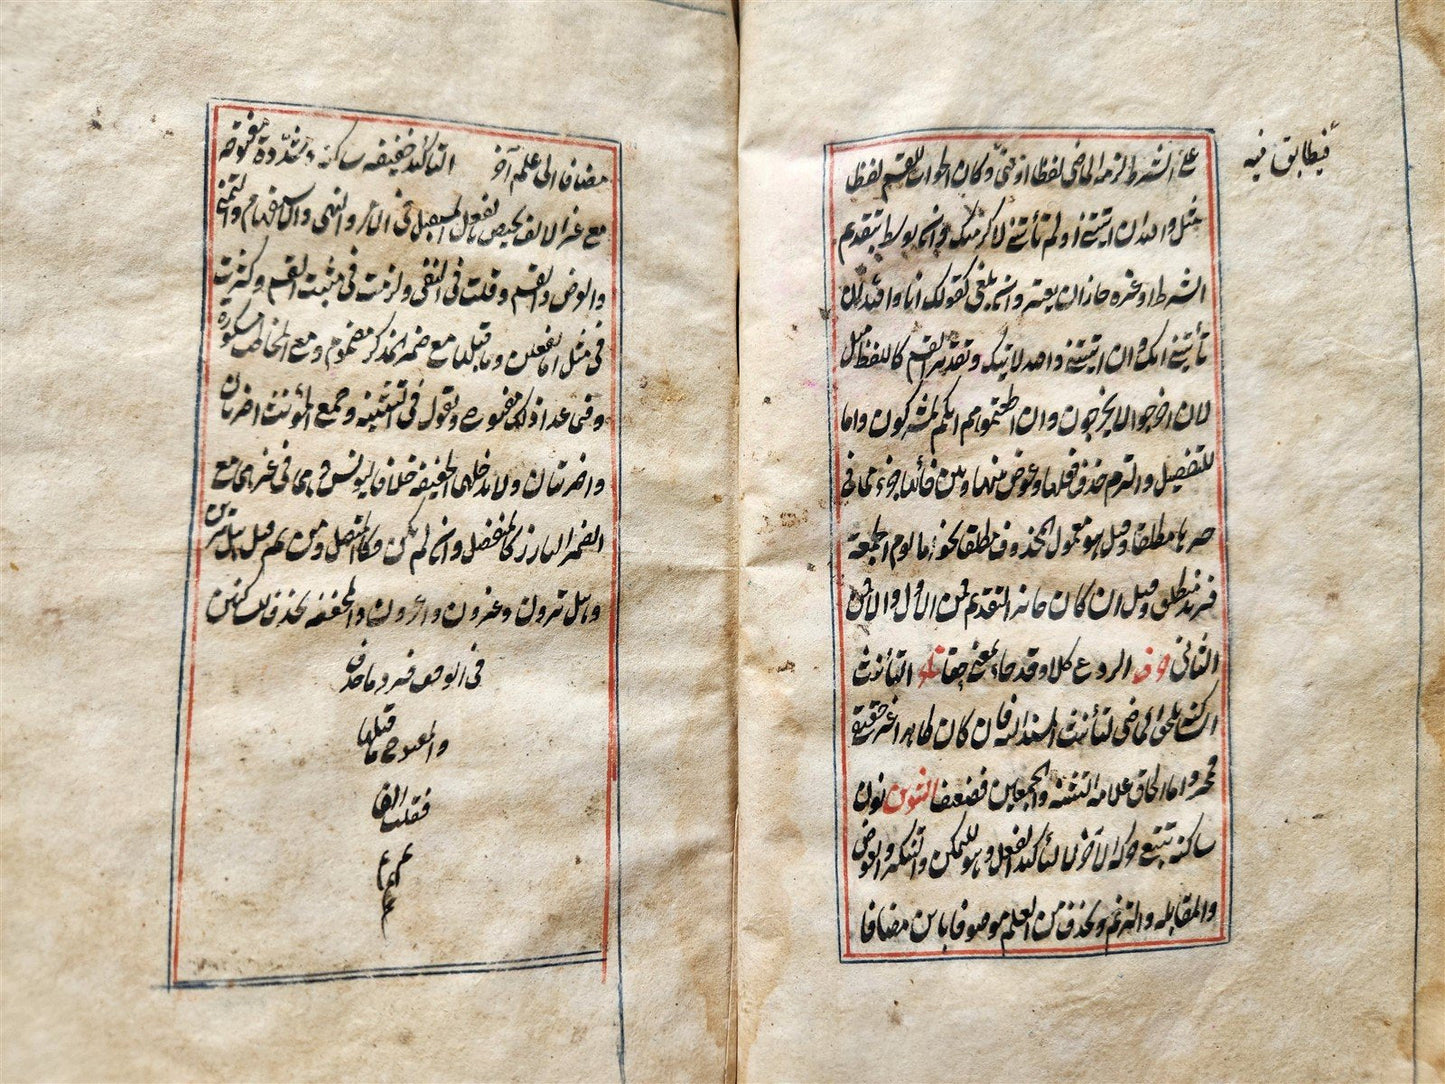 على الشرط لزمه الماضى لفظا او معنى وكان الجواب للقسم لفظا
فيطابق فيه
مثل والله ان اتيتنى او لم تأتنى لاكرمتك وان توسط بتقديم
الشرط او غيره جاز ان يعتبر وان يلغى كقولك انا والله لان
تأتنى آتك وان اتيتنى والله لاتينك وتقدير القسم كاللفظ مثل
لان اخرجوا لا يخرجون وان اطعتموهم انكم لمشركون واما
للتفصيل والتزم حذف فعلها وعوض بينها وبين فائها جزء مما فى
حيزها مطلقا وقيل هو معمول المحذوف مطلقا نحو اما يوم الجمعة
فزيد منطلق وقيل ان كان جائز التقديم فمن الاول والا فمن
الثانى حرف الردع كلا وقد جاء بمعنى حقا تاء التأنيث
الساكنة تلحق الماضى لتأنيث المسند اليه فان كان ظاهرا غير حقيقى
فمخير واما الحاق علامة التثنية والجمعين فضعيف التنوين نون
ساكنة تتبع حركة الآخر لا لتأكيد الفعل وهو للتمكن والتنكير والعوض
والمقابلة والترنم ويحذف من العلم موصوفا بابن مضافا
مضافا الى علم آخر التأكيد خفيفة ساكنة ومشددة مفتوحة
مع غير الالف يختص بالفعل المستقبل فى الامر والنهى والاستفهام والتمنى
والعرض والقسم وقلت فى النفى ولزمت فى مثبت القسم وكثرت
فى مثل اما تفعلن وما قبلها مع ضمير المذكر مضموم ومع المخاطب مكسورة
وفى عدا ذلك مفتوح وتقول فى التثنية وجمع المؤنث اضربان
واضربنان ولا تدخلهما الخفيفة خلافا ليونس وهما فى غيرهما مع
الضمير البارز كالمنفصل وان لم يكن فكالمتصل ومن ثم قيل هل ترين
وهل ترون وترون واغزون والمخففة تحذف للساكنين
فى الوقف فيرد ما حذف
والمفتوح ما قبلها
فقلبت الفا